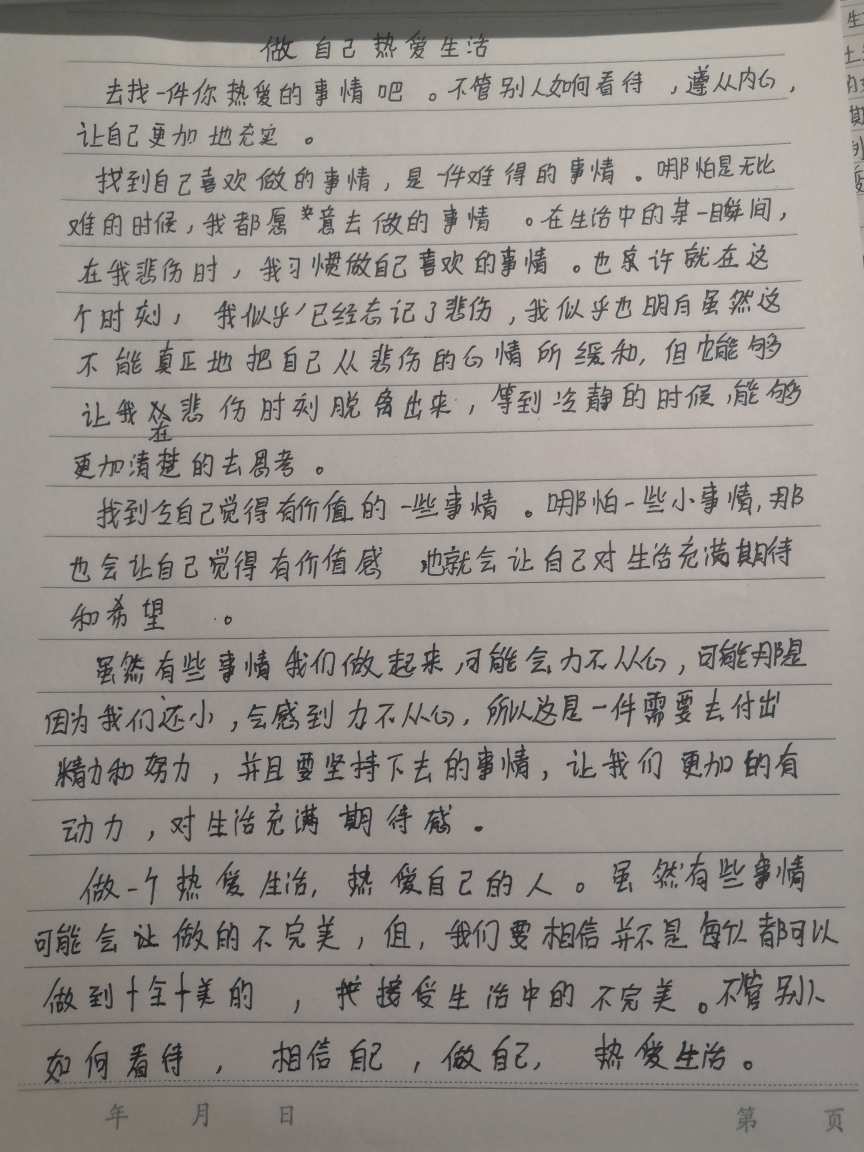 做自己热爱生活
去找一件你热爱的事情吧。不管别人如何看待,遵从内心,
让自己更加地充实。
找到自己喜欢做的事情,是一件难得的事情。哪怕是无比
难的时候,我都愿意去做的事情。在生活中的某一瞬间,
在我悲伤时,我习惯做自己喜欢的事情。也许就在这
个时刻,我似乎已经忘记了悲伤,我似乎也明白虽然这
不能真正地把自己从悲伤的心情所缓和,但也能够
让我在悲伤时刻脱离出来,等到冷静的时候,能够
更加清楚的去思考。
找到令自己觉得有价值的一些事情。哪怕一些小事情,那
也会让自己觉得有价值感 也就会让自己对生活充满期待
和希望。
虽然有些事情我们做起来,可能会力不从心,可能那是
因为我们还小,会感到力不从心,所以这是一件需要去付出
精力和努力,并且要坚持下去的事情,让我们更加的有
动力,对生活充满期待感。
做一个热爱生活,热爱自己的人。虽然有些事情
可能会让做的不完美,但,我们要相信并不是每个人都可以
做到十全十美的,接受生活中的不完美。不管别人
如何看待,相信自己,做自己,热爱生活。
年 月 日 第 页